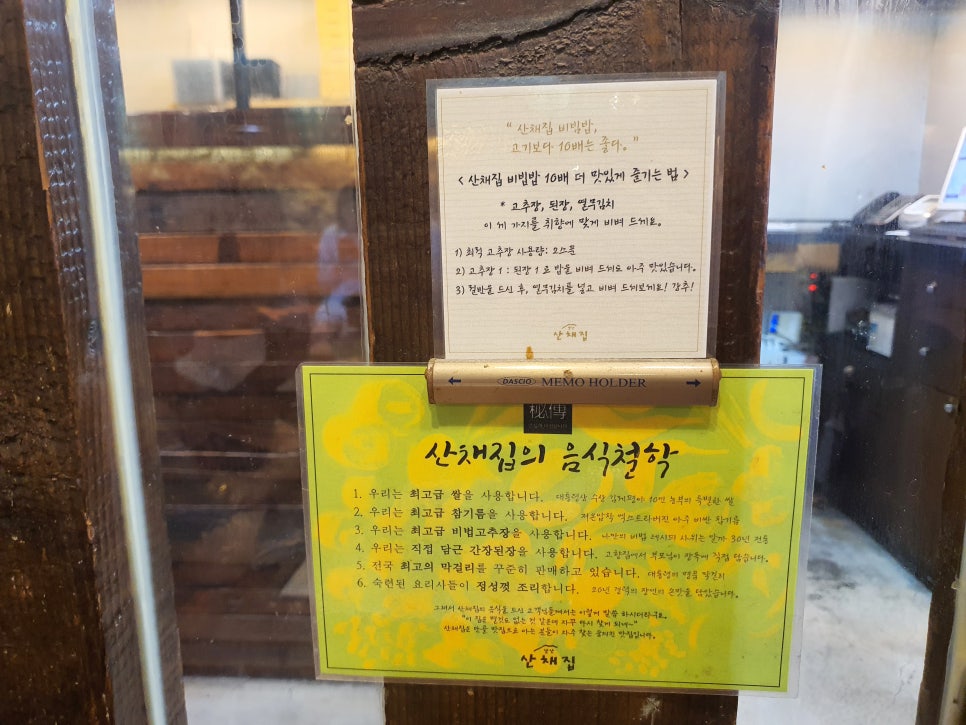 “ 산채집 비빔밥,
고기보다 10배는 좋다。”
< 산채집 비빔밥 10배 더 맛있게 즐기는 법 >
* 고추장, 된장, 열무김치
이 세 가지를 취향에 맞게 비벼 드세요。
1) 최적 고추장 사용량: 2스푼
2) 고추장 1 : 된장 1 로 밥을 비벼 드세요 아주 맛있습니다。
3) 절반을 드신 후, 열무김치를 넣고 비벼 드셔보세요! 강추!
산채집
DASCIO MEMO HOLDER
秘傳
산채집의 음식철학
1. 우리는 최고급 쌀을 사용합니다. 대통령상 수상 김제평야 10인 농부의 특별한 쌀
2. 우리는 최고급 참기름을 사용합니다. 저온압착 엑스트라버진 아주 비싼 참기름
3. 우리는 최고급 비법고추장을 사용합니다. 나만의 비법 레시피 30년 전통
4. 우리는 직접 담근 간장된장을 사용합니다. 고향집에서 부모님이 장독에 직접 담습니다。
5. 전국 최고의 막걸리를 꾸준히 판매하고 있습니다. 대통령의 명품 막걸리
6. 숙련된 요리사들이 정성껏 조리합니다. 20년 경력의 장인의 손맛을 담았습니다。
그래서 산채집의 음식을 드신 고객님들께서는 이렇게 말씀 하시더라구요。
"이 집은 별것도 없는 것 같은데 자꾸 다시 찾게 되네~"
산채집은 산을 맛집으로 아는 분들이 자주 찾는 숨겨진 맛집입니다。
산채집